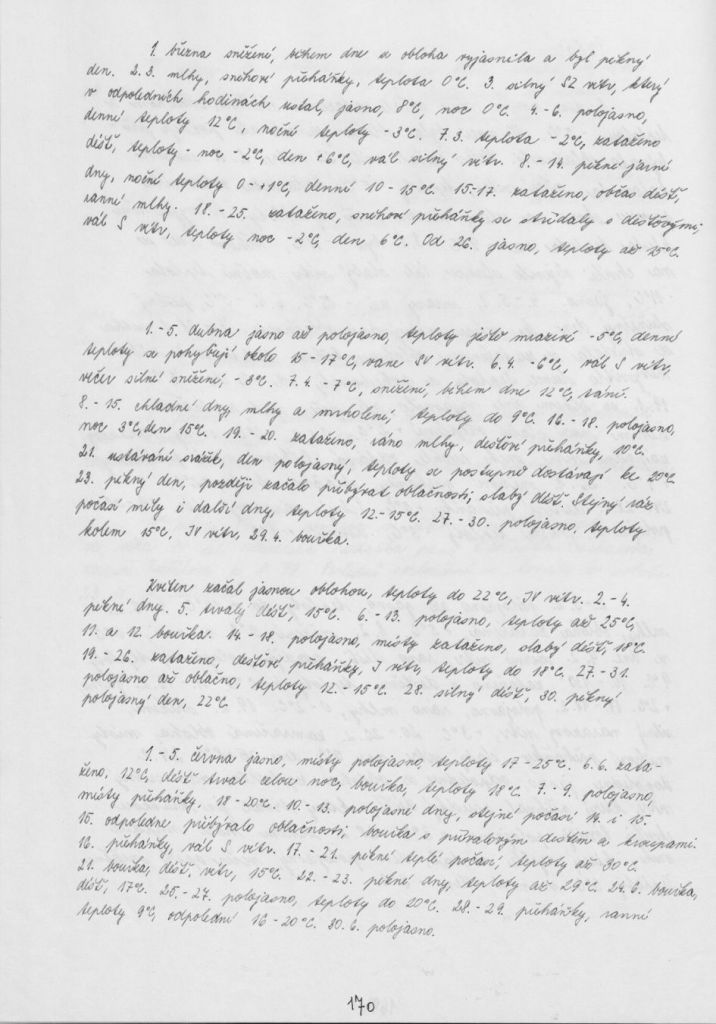 1. března sněžení, během dne se obloha vyjasnila a byl pěkný
den. 2.3. mlhy, sněhové přeháňky, teplota 0°C. 3. silný SZ vítr, který
v odpoledních hodinách ustal, jasno, 8°C, noc 0°C. 4.-6. polojasno,
denní teploty 12°C, noční teploty -3°C. 7.3. teplota -2°C, zataženo
déšť, teploty - noc -2°C, den +6°C, vál silný vítr. 8.-14. pěkné jarní
dny, noční teploty 0-+1°C, denní 10-15°C. 15.-17. zataženo, občas déšť,
ranní mlhy. 18.-25. zataženo, sněhové přeháňky se střídaly s dešťovými,
vál S vítr, teploty noc -2°C, den 6°C. Od 26. jasno, teploty až 15°C.
1.-5. dubna jasno až polojasno, teploty ještě mrazivé -5°C, denní
teploty se pohybují okolo 15-17°C, vane SV vítr. 6.4. -6°C, vál S vítr,
večer silné sněžení, -8°C. 7.4. -7°C, sněžení, během dne 12°C, tání.
8.-15. chladné dny, mlhy a mrholení, teploty do 9°C. 16.-18. polojasno,
noc 3°C, den 15°C. 19.-20. zataženo, ráno mlhy, dešťové přeháňky, 10°C.
21. ustávání srážek, den polojasný, teploty se postupně dostávají ke 20°C
23. pěkný den, později začalo přibývat oblačnosti, slabý déšť. Stejný ráz
počasí měly i další dny, teploty 12.-15°C. 27.-30. polojasno, teploty
kolem 15°C, JV vítr, 29.4. bouřka.
Květen začal jasnou oblohou, teploty do 22°C, JV vítr. 2.-4.
pěkné dny. 5. trvalý déšť, 15°C. 6.-13. polojasno, teploty až 25°C,
11. a 12. bouřka. 14.-18. polojasno, místy zataženo, slabý déšť, 18°C.
19.-26. zataženo, dešťové přeháňky, J vítr, teploty do 18°C, 27.-31.
polojasno až oblačno, teploty 12.-15°C. 28. silný déšť, 30. pěkný
polojasný den, 22°C.
1.-5. června jasno, místy polojasno, teploty 17-25°C. 6.6. zata-
ženo. 12°C, déšť trval celou noc, bouřka, teploty 18°C. 7.-9. polojasno,
místy přeháňky, 18-20°C. 10.-13. polojasné dny, stejné počasí 14. i 15.
15. odpoledne přibývalo oblačnosti, bouřka s přívalovým deštěm a kroupami.
16. přeháňky, vál S vítr. 17.-21. pěkné teplé počasí, teploty až 30°C.
21. bouřka, déšť, vítr, 15°C. 22.-23. pěkné dny, teploty až 29°C. 24.6. bouřka,
déšť, 17°C. 25.-27. polojasno, teploty do 20°C. 28.-29. přeháňky, ranní
teploty 9°C, odpolední 16-20°C. 30.6. polojasno.
170